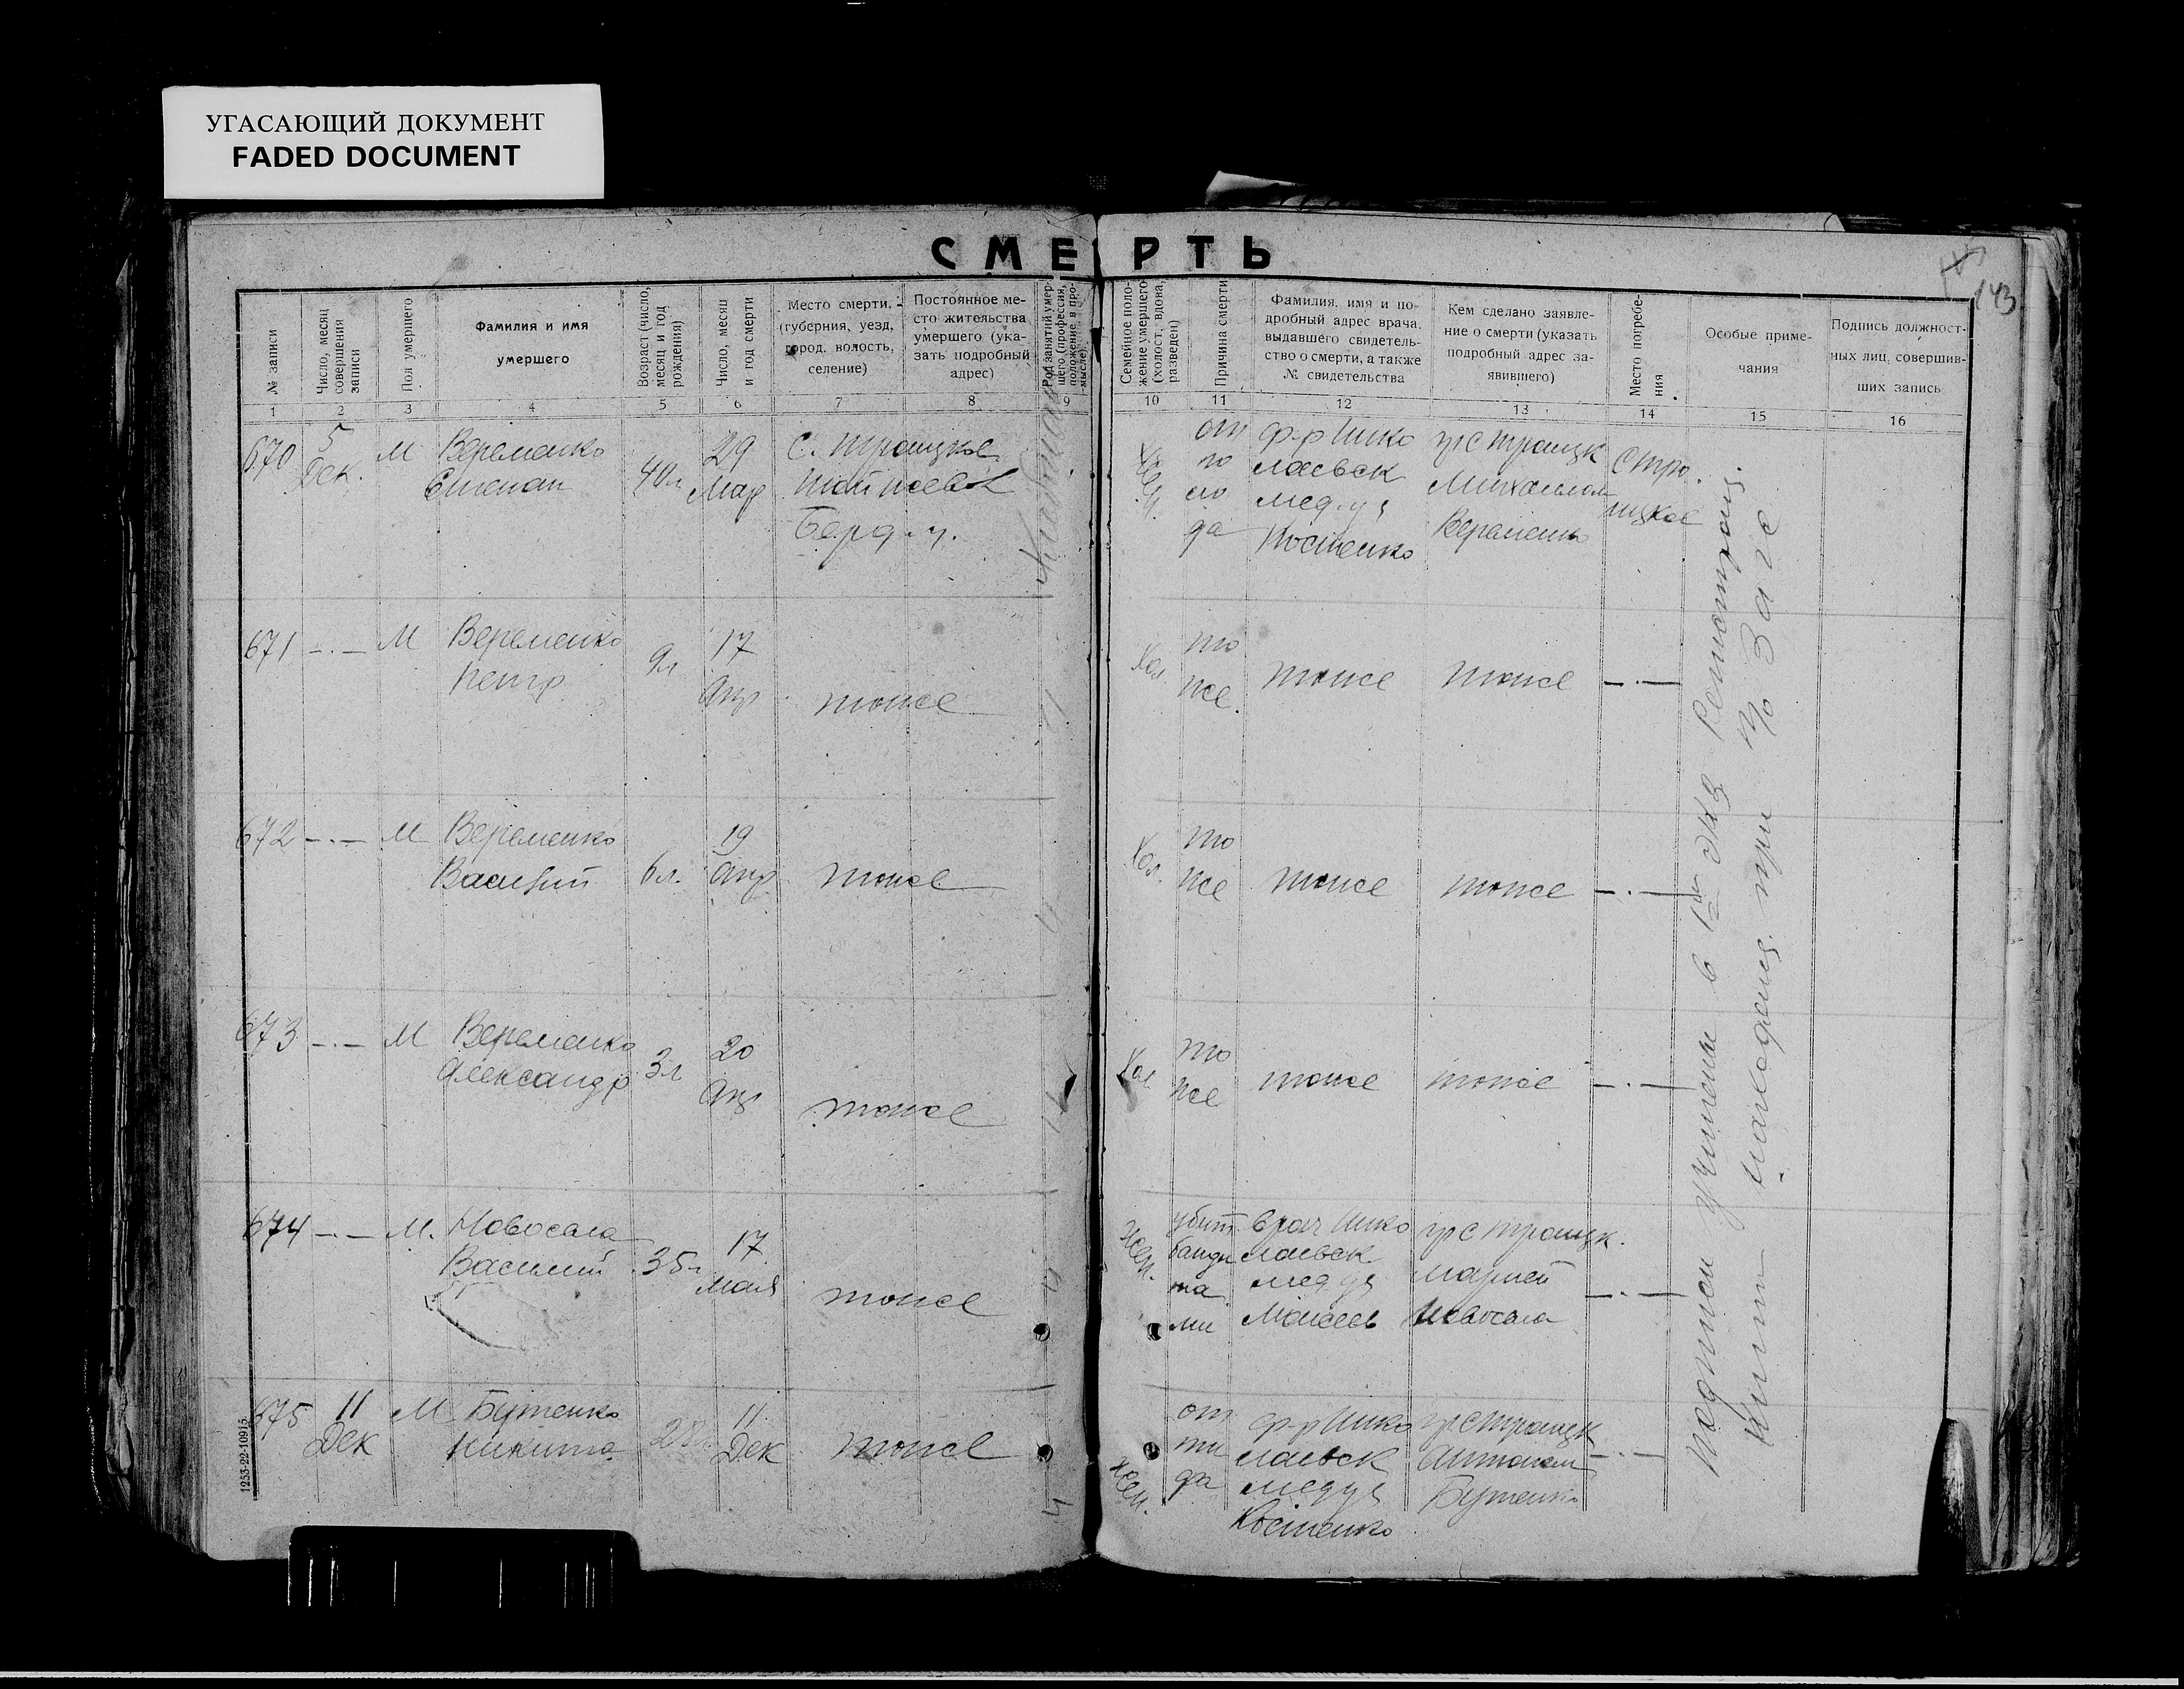 УГАСАЮЩИЙ ДОКУМЕНТ
FADED DOCUMENT
СМЕРТЬ
143
№ записи
Число, месяц
совершения
записи
Пол умершего
Фамилия и имя
умершего
Возраст (число,
месяц и год
рождения)
Число, месяц
и год смерти
Место смерти,
(губерния, уезд,
город, волость,
селение)
Постоянное ме-
сто жительства
умершего (ука-
зать подробный
адрес)
Род занятий умер-
шего (профессия,
положение в про-
мысле).
Семейное поло-
жение умершего
(холост, вдова,
разведен)
Причина смерти
Фамилия, имя и по-
дробный адрес врача,
выдавшего свидетель-
ство о смерти, а также
№ свидетельства
Кем сделано заявле-
ние о смерти (указать
подробный адрес за-
явившего)
Место погребе-
ния
Особые приме-
чания
Подпись должност-
ных лиц, совершив-
ших запись
1 2 3 4 5 6 7 8 9 10 11 12 13 14 15 16
670
5
Дек.
М
Веременко
Степан
40 л
29
Мар
с. Троицкое
Берд. у.
от
го
ло
да
ф-р Нико
лаевск
мед. уч
Костенко
гр с Троицк
Михаилом
Веременко
с Тро
ицкое
671
-·-
М
Веременко
Петр
9 л
17
Апр
тоже
Хол.
то
же
тоже
тоже
-·-
672
-·-
М
Веременко
Василий
6 л.
19
Апр
тоже
Хол.
то
же
тоже
тоже
-·-
673
-·-
М
Веременко
Александр
3 л
20
Апр
тоже
Хол
то
же
тоже
тоже
-·-
674
-·-
М.
Новосела
Василий
35 л
17
мая
тоже
Жен.
убит
банди
та
ми
врач Нико
лаевск
мед уч
Моисеев
гр с Троицк.
Марией
Новосела
-·-
675
11
Дек
М
Бутенко
Никита
11
Дек
тоже
жен.
от
ти
фа
ф-р Нико
лаевск
мед уч
Костенко
гр с Троицк
Антоном
Бутенко
-·-
учинены в 1м экз
находящ. при
по Загс
1253-22-10915